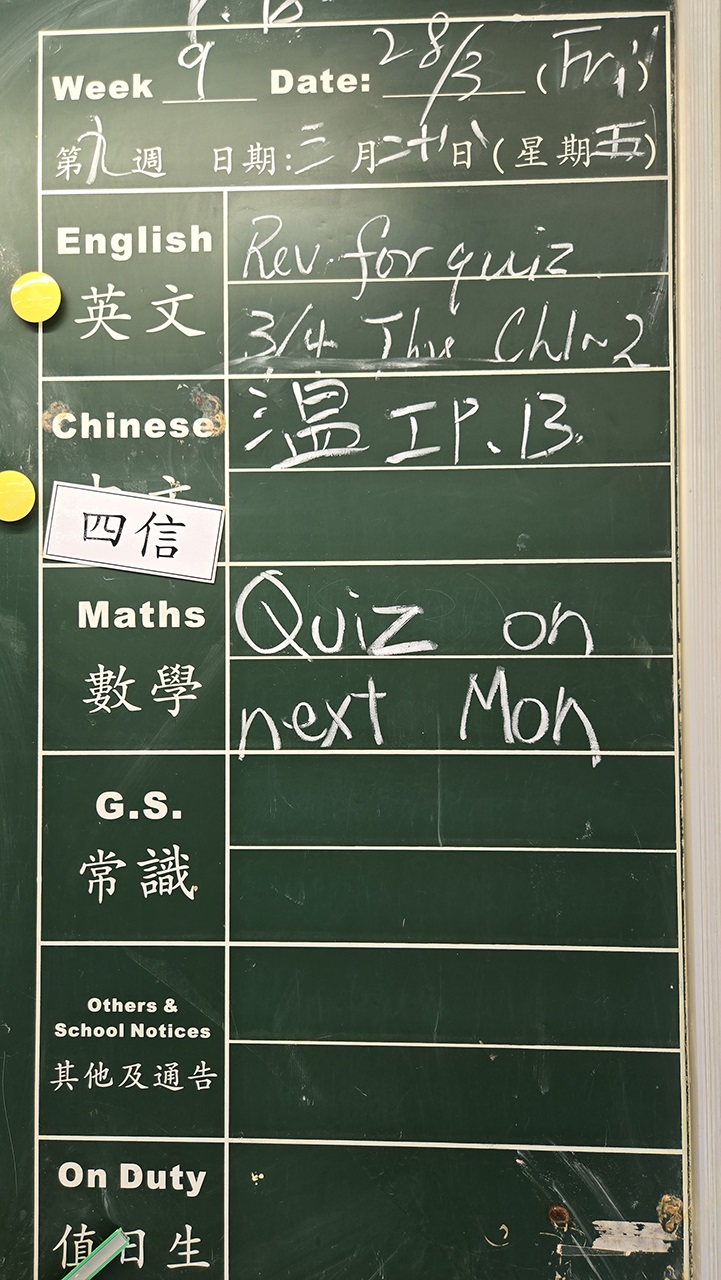 P. B
Week 9 Date: 28/3 (Fri)
第九週 日期:三月二十八日(星期五)
English
英文
Rev. for quiz
3/4 Thur Ch1~2
Chinese
溫 工P. 13.
四信
Maths
數學
Quiz on
next Mon
G.S.
常識
Others &
School Notices
其他及通告
On Duty
值日生